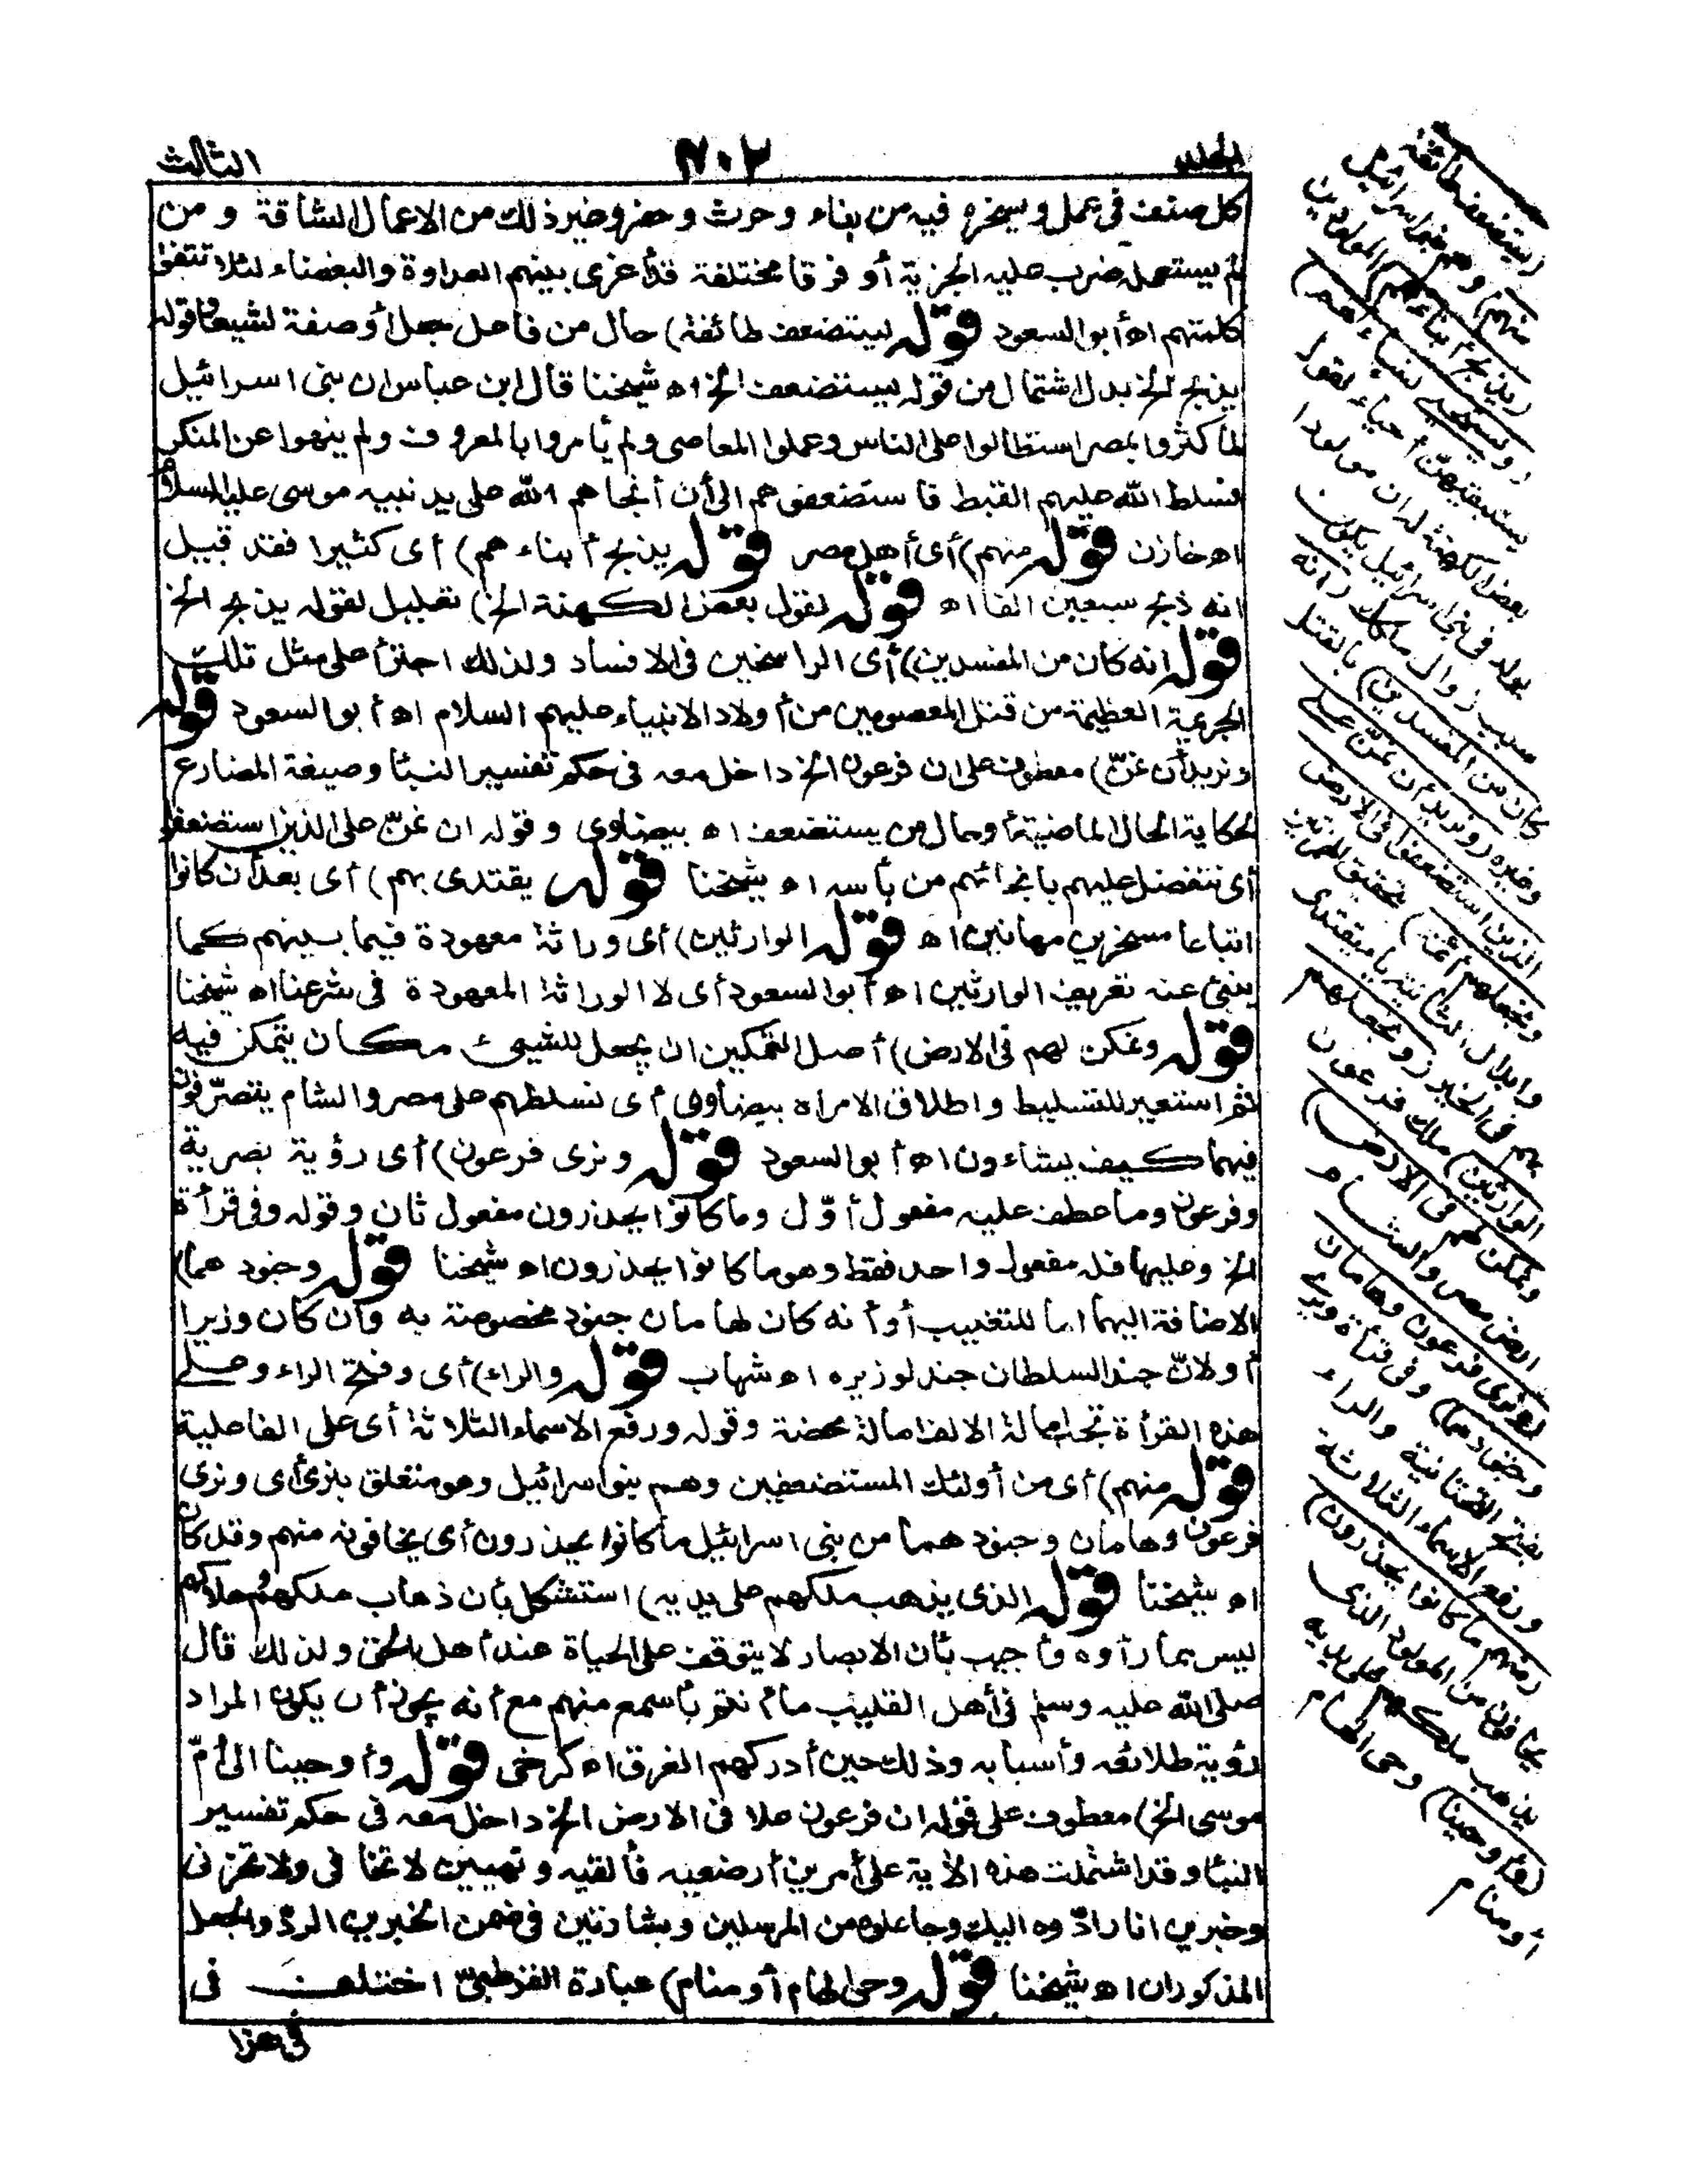 الجلد
٧٠٢
الثالث
كل صنف في عمل ويسخره فيه من بناء وحرث وحفر وغير ذلك من الاعمال الشاقة ومن
لم يستعمله ضرب عليه الجزية أو فرقا مختلفة قد أغرى بينهم العداوة والبغضاء لئلا تتفق
كلمتهم اه أبو السعود قوله يستضعف طائفة) حال من فاعل جعل أو صفة لشيعا وقوله
يذبح الخ بدل اشتمال من قوله يستضعف الخ اه شيخنا قال ابن عباس ان بني اسرائيل
لما كثروا بمصر استطالوا على الناس وعملوا المعاصي ولم يأمروا بالمعروف ولم ينهوا عن المنكر
فسلط الله عليهم القبط فاستضعفوهم الى أن أنجاهم الله على يد نبيه موسى عليه السلام
اه خازن قوله منهم) أي أهل مصر قوله يذبح أبناءهم) أي كثيرا فقد قيل
انه ذبح سبعين الفا اه قوله لقول بعض الكهنة الخ) تعليل لقوله يذبح الخ
قوله انه كان من المفسدين) أي الراسخين في الافساد ولذلك اجترأ على مثل تلك
الجريمة العظيمة من قتل المعصومين من أولاد الانبياء عليهم السلام اه أبو السعود قوله
ونريد أن نمنّ) معطوف على ان فرعون الخ داخل معه في حكم تفسير النبأ وصيغة المضارع
لحكاية الحال الماضية أو حال من يستضعف اه بيضاوي وقوله ان نمنّ على الذين استضعفوا
أي نتفضل عليهم بانجائهم من بأسه اه شيخنا قوله يقتدى بهم) أي بعد أن كانوا
اتباعا مسخرين مهانين اه قوله الوارثين) أي وراثة معهودة فيما بينهم كما
ينبئ عنه تعريف الوارثين اه أبو السعود أي لا الوراثة المعهودة في شرعنا اه شيخنا
قوله ونمكن لهم في الارض) أصل التمكين ان يجعل للشيئ مكان يتمكن فيه
ثم استعير للتسليط واطلاق الامر اه بيضاوي أي نسلطهم على مصر والشام يتصرّفون
فيهما كيف يشاءون اه أبو السعود قوله ونرى فرعون) أي رؤية بصرية
وفرعون وما عطف عليه مفعول أوّل وما كانوا يحذرون مفعول ثان وقوله وفي قرأة
الخ وعليها فله مفعول واحد فقط وهو ما كانوا يحذرون اه شيخنا قوله وجنودهما)
الاضافة اليهما اما للتغليب أو أنه كان لهامان جنود مخصوصة به وان كان وزيرا
أو لانّ جند السلطان جند لوزيره اه شهاب قوله والراء) أي وفتح الراء وعلى
هذه القرأة تجب امالة الالف امالة محضة وقوله ورفع الاسماء الثلاثة أي على الفاعلية
قوله منهم) أي من أولئك المستضعفين وهم بنو اسرائيل وهو متعلق بنرى أي ونرى
فرعون وهامان وجنودهما من بني اسرائيل ما كانوا يحذرون أي يخافونه منهم وقد كان
اه شيخنا قوله الذي يذهب ملكهم على يديه) استشكل بأن ذهاب ملكهم وهلاكهم
ليس مما رأوه وأجيب بأن الابصار لا يتوقف على الحياة عند أهل الحق ولذلك قال
صلى الله عليه وسلم في أهل القليب ما أنتم بأسمع منهم مع أنه يجوز أن يكون المراد
رؤية طلائعه وأسبابه وذلك حين أدركهم الغرق اه كرخي قوله وأوحينا الى أمّ
موسى الخ) معطوف على قوله ان فرعون علا في الارض الخ داخل معه في حكم تفسير
النبأ وقد اشتملت هذه الآية على أمرين أرضعيه فألقيه ونهيين لا تخافي ولا تحزني
وخبرين انا رادّوه اليك وجاعلوه من المرسلين وبشارتين في ضمن الخبرين الردّ والجعل
المذكوران اه شيخنا قوله وحي الهام أو منام) عبارة القرطبيّ اختلف في
في هذا
(يستضعف طائفة
منهم) وهم بنو اسرائيل
(يذبح أبناءهم) المولودين
(ويستحيي نساءهم)
يستبقيهنّ أحياء لقول
بعض الكهنة له ان مولودا
يولد في بني اسرائيل يكون
سبب زوال ملكك (انه
كان من المفسدين) بالقتل
وغيره (ونريد ان نمنّ على
الذين استضعفوا في الارض
ونجعلهم أئمة) بتحقيق الهمزتين
وابدال الثانية ياء يقتدى
بهم في الخير (ونجعلهم
الوارثين) ملك فرعون
(ونمكن لهم في الارض)
ارض مصر والشام
(ونرى فرعون وهامان
وجنودهما) وفي قرأة ويرى
بفتح التحتانية والراء
ورفع الاسماء الثلاثة
(منهم ما كانوا يحذرون)
يخافون من المولود الذي
يذهب ملكهم على يديه
(وأوحينا) وحي الهام
أو منام